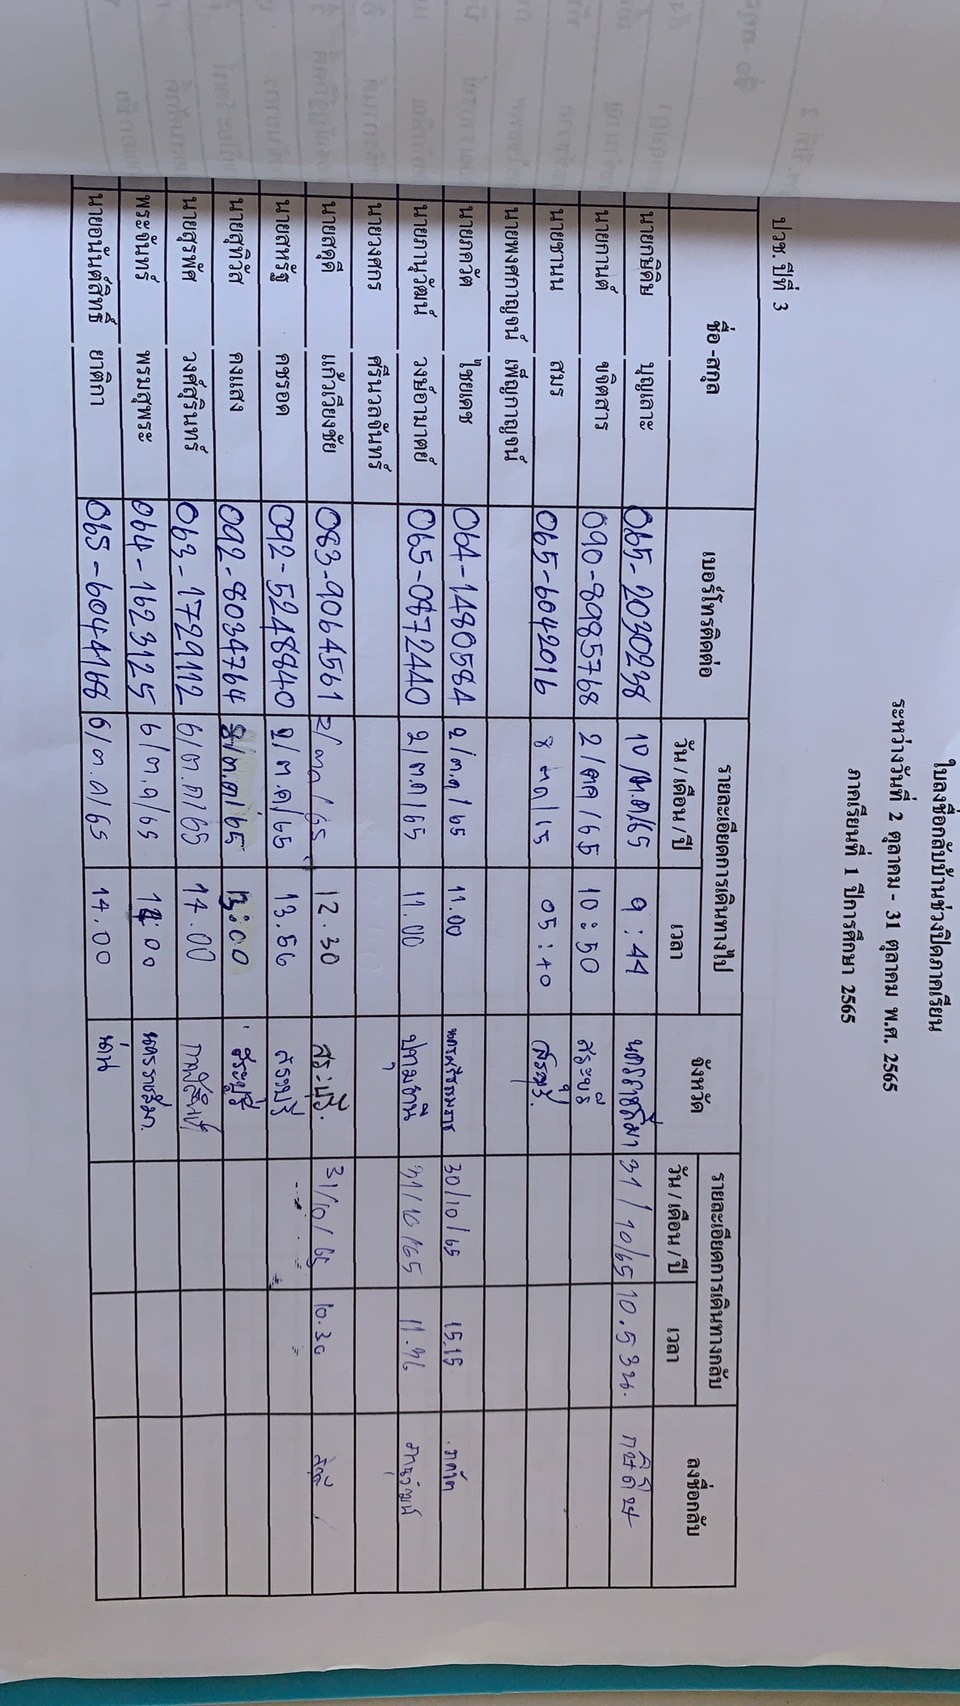 ใบลงชื่อกลับบ้านช่วงปิดภาคเรียน
ระหว่างวันที่ 2 ตุลาคม - 31 ตุลาคม พ.ศ. 2565
ภาคเรียนที่ 1 ปีการศึกษา 2565
ปวช. ปีที่ 3
ชื่อ -สกุล เบอร์โทรติดต่อ รายละเอียดการเดินทางไป จังหวัด รายละเอียดการเดินทางกลับ ลงชื่อกลับ
วัน / เดือน / ปี เวลา วัน / เดือน / ปี เวลา
นายกษิดิษ บุญเลาะ 065-2030238 10/ต.ค/65 9:44 นครราชสีมา 31/10/65 10.53น. กษิดิษ
นายกานต์ ขจิตสาร 090-8985768 2/ตค/65 10:50 สระบุรี
นายชานน สมร 065-6042016 8 ตค/65 05:40
นายพงศกาญจน์ เพ็ญกาญจน์
นายภควัต ไชยเดช 064-1480584 2/ต.ค/65 11.00 นครศรีธรรมราช 30/10/65 15.15 ภควัต
นายภานุวัฒน์ วงษ์อามาตย์ 065-0872440 2/ต.ค/65 11.00 ปทุมธานี 31/10/65 11.36 ภานุวัฒน์
นายวงศกร ศรีนวลจันทร์
นายสดุดี แก้วเวียงชัย 083-9064561 2/ตค/65 12.30 สระบุรี 31/10/65 10.30 สดุดี
นายสหรัฐ คชรอด 092-5248840 2/ต.ค/65 13.56 สระบุรี
นายสุทิวัส คงแสง 092-8034764 8/ต.ค/65 13:00 สระบุรี
นายสุรพัศ วงศ์สุรินทร์ 063-1729112 6/ต.ค/65 14.00 กาฬสินธุ์
พระจันทร์ พรมสุพระ 064-1623125 6/ต.ค/65 นครราชสีมา
นายอนันต์สิทธิ์ ยาติกา 065-6044168 6/ต.ค/65 14.00 น่าน